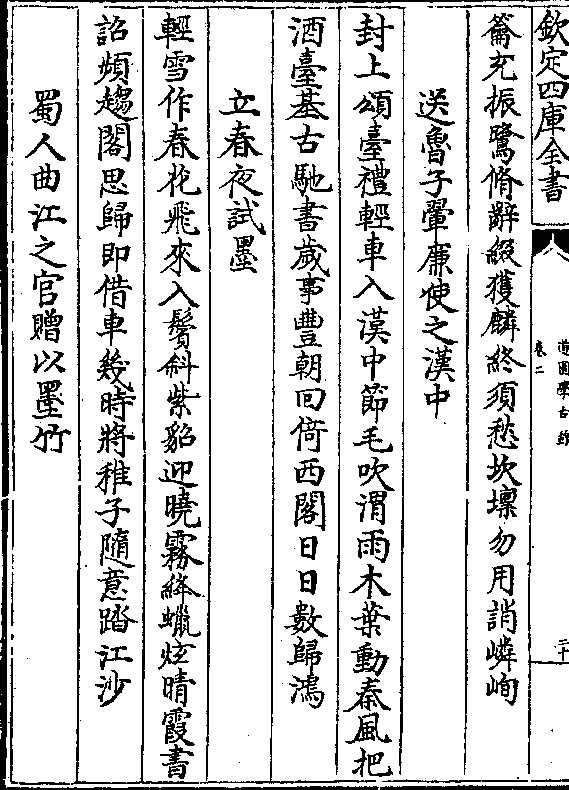 欽定四庫全書
道園學古錄
卷二
二十
籥充振鷺脩辭綴獲麟終須愁坎壈勿用誚嶙峋
送魯子翬廉使之漢中
封上頌臺禮輕車入漢中節毛吹渭雨木葉動秦風把
酒臺基古馳書歲事豐朝回倚西閣日日數歸鴻
立春夜試墨
輕雪作春花飛來入鬢斜紫貂迎曉霧絳蠟炫晴霞書
詔頻趨閣思歸即借車幾時將稚子隨意踏江沙
蜀人曲江之官贈以墨竹